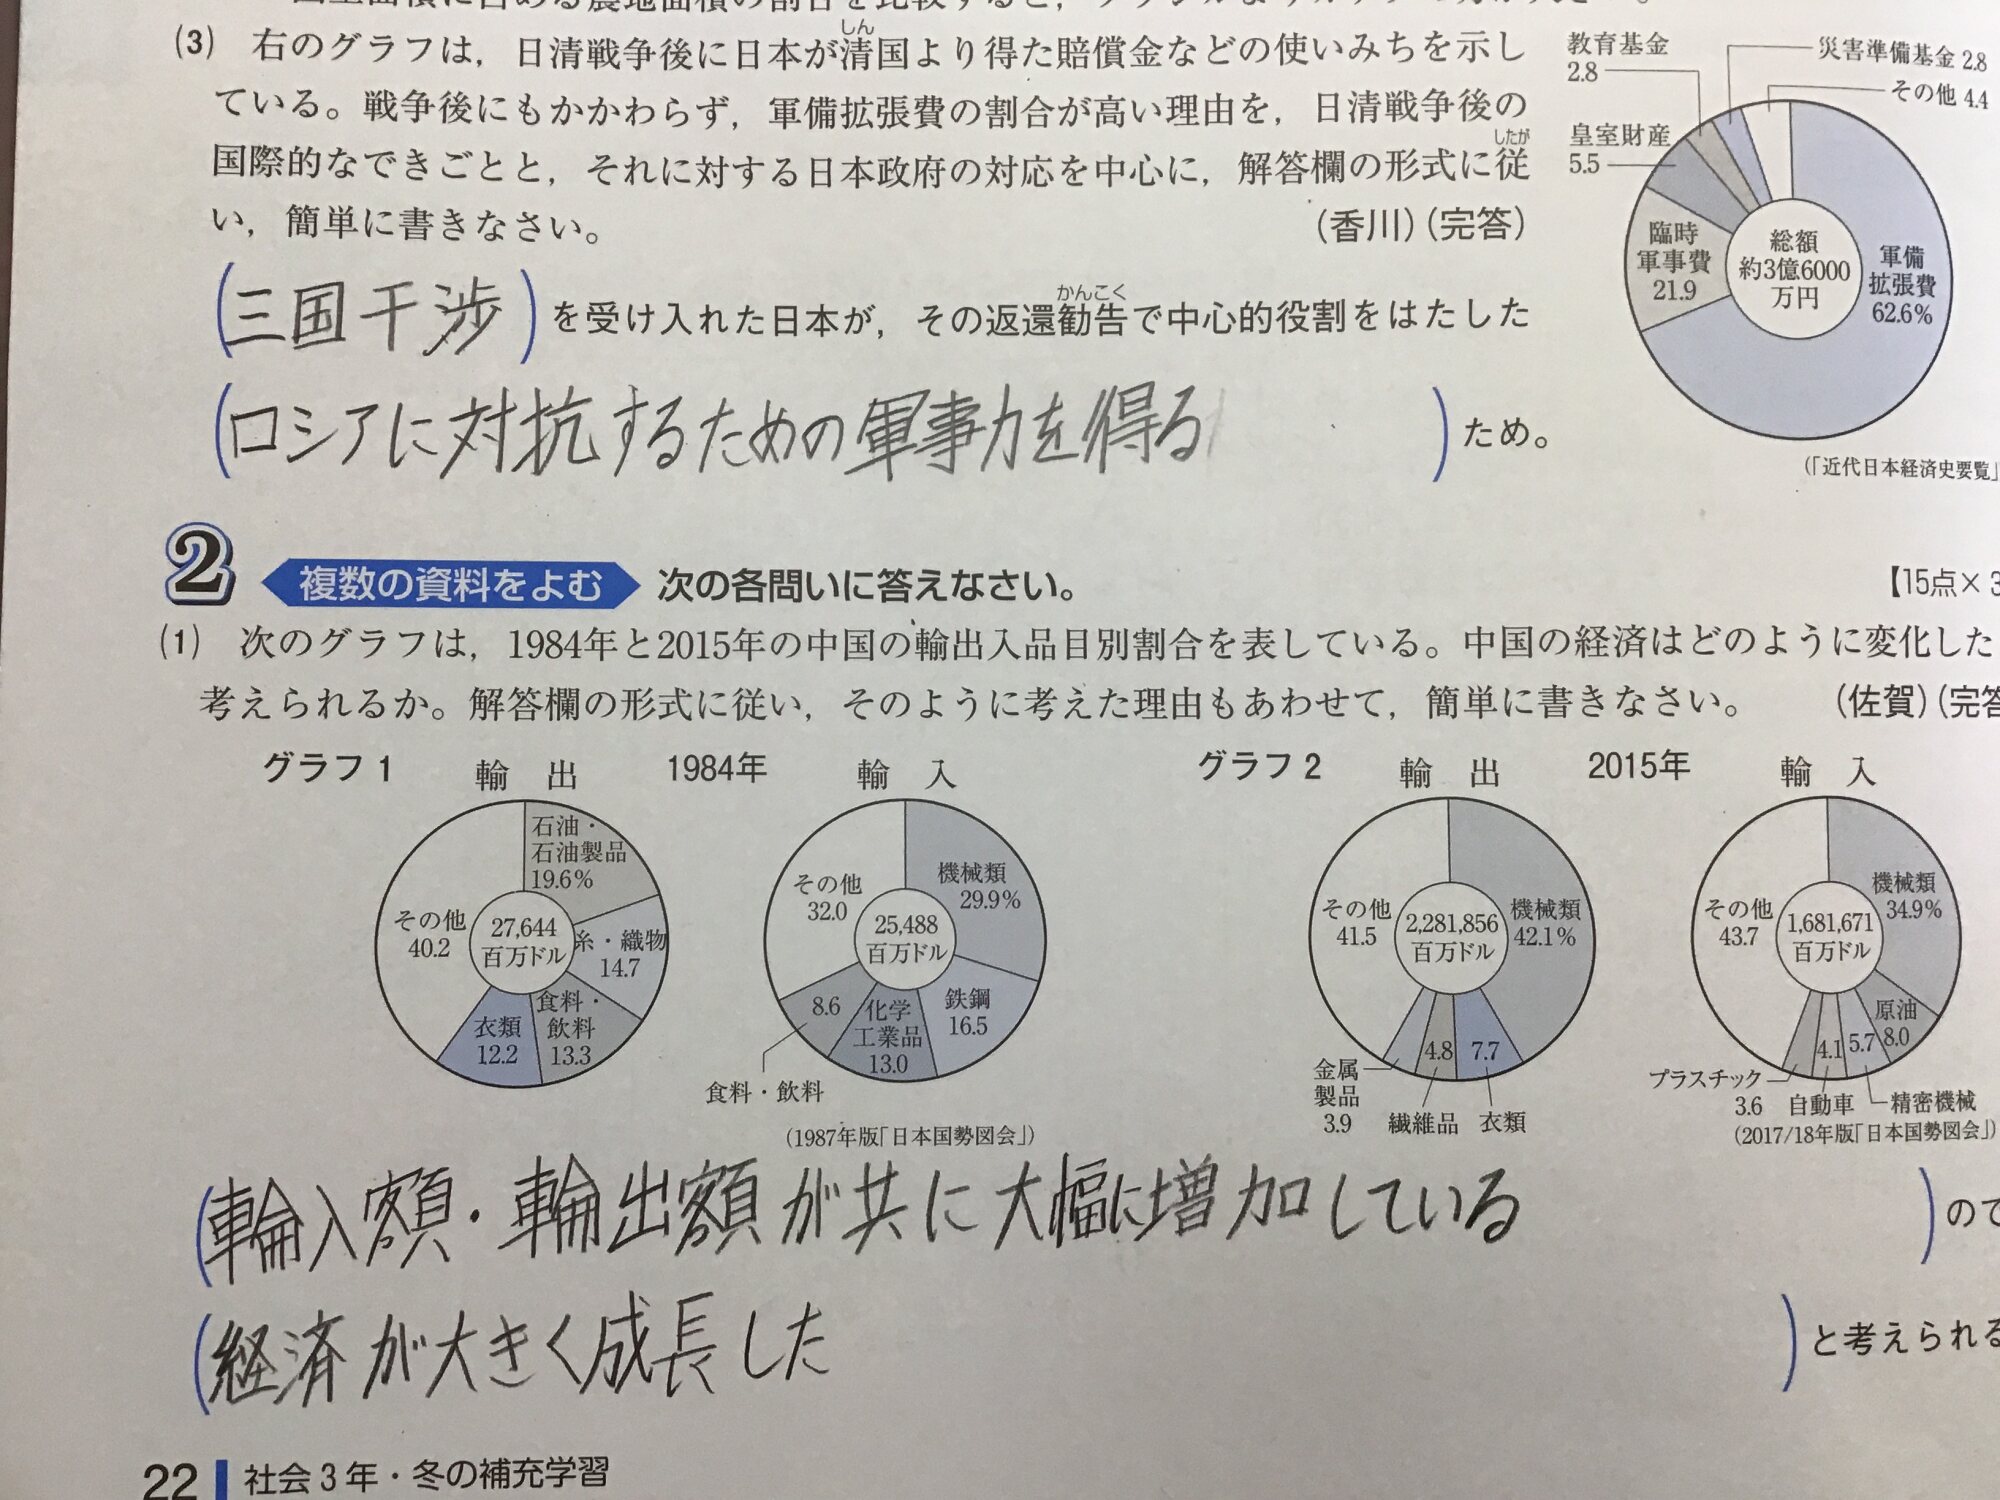 (3) 右のグラフは，日清戦争後に日本が清国より得た賠償金などの使いみちを示し
しん
ている。戦争後にもかかわらず，軍備拡張費の割合が高い理由を，日清戦争後の
国際的なできごとと，それに対する日本政府の対応を中心に，解答欄の形式に従
したが
い，簡単に書きなさい。 (香川)(完答)
(三国干渉)を受け入れた日本が，その返還勧告で中心的役割をはたした
かんこく
(ロシアに対抗するための軍事力を得る)ため。
教育基金
2.8
災害準備基金 2.8
その他 4.4
皇室財産
5.5
臨時
軍事費
21.9
総額
約3億6000
万円
軍備
拡張費
62.6%
(「近代日本経済史要覧」
2 複数の資料をよむ 次の各問いに答えなさい。 【15点×3
(1) 次のグラフは，1984年と2015年の中国の輸出入品目別割合を表している。中国の経済はどのように変化した
考えられるか。解答欄の形式に従い，そのように考えた理由もあわせて，簡単に書きなさい。 (佐賀)(完答
グラフ1 輸出 1984年 輸入
石油・
石油製品
19.6%
糸・織物
14.7
食料・
飲料
13.3
衣類
12.2
その他
40.2
27,644
百万ドル
機械類
29.9%
鉄鋼
16.5
化学
工業品
13.0
8.6
食料・飲料
その他
32.0
25,488
百万ドル
(1987年版「日本国勢図会」)
グラフ2 輸出 2015年 輸入
機械類
42.1%
7.7
衣類
4.8
繊維品
金属
製品
3.9
その他
41.5
2,281,856
百万ドル
機械類
34.9%
原油
8.0
5.7
精密機械
4.1
自動車
プラスチック
3.6
その他
43.7
1,681,671
百万ドル
(2017/18年版「日本国勢図会」)
(輸入額・輸出額が共に大幅に増加している)ので
(経済が大きく成長した)と考えられる
22 社会3年・冬の補充学習